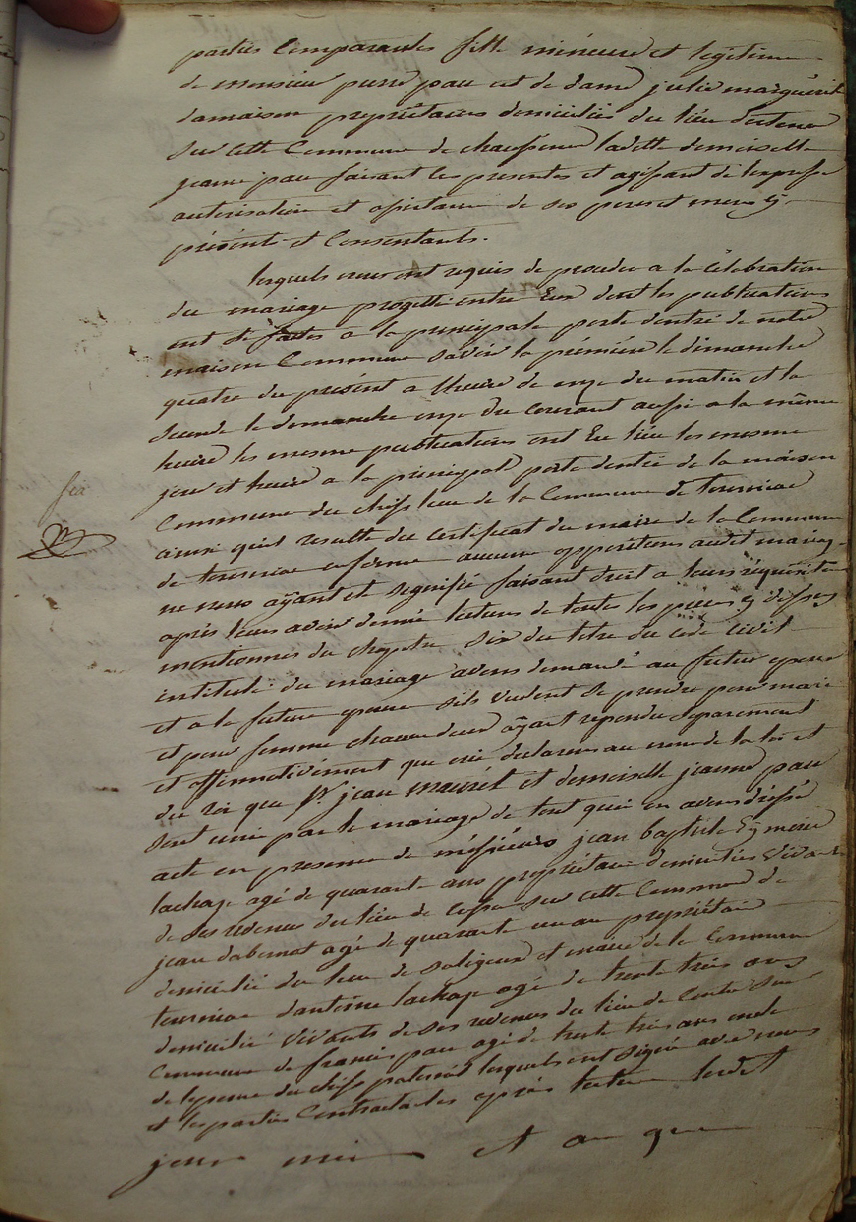 parties Comparantes fille mineure et legitime
de monsieur pierre pau et de dame julie marguerite
damaison propriétaires domiciliés du lieu
sur cette Commune de ladite demoiselle
jeanne pau faisant les presentes et agissant de l'expresse
autorisation et assistance de ses pere et mere y
présents et Consentants.
lesquels nous ont requis de proceder a la Célébration
du mariage progetté entre Eux dont les publications
ont été faites a la principale porte dentré de notre
maison Commune savoir la première le dimanche
quatre du présent a l'heure de onze du matin et la
seconde le dimanche onze du courant aussi a la même
heure les mesme publications ont Eu lieu les mesme
jour et heure a la principal porte dentrée de la maison
Commune du chef lieu de la Commune de tourniac
ainsi quil resulte du certificat du maire de la Commune
de tourniac aucune opposition audit mariage
ne nous ayant été signifié faisant droit a leurs réquisition
après leurs avoir donné lecture de toutes les pieces cy dessus
mentionnés du chapitre six du titre du code Civil
intitulé du mariage avons demandé au futur epoux
et a la future epouse sils veulent se prendre pour mari
et pour femme chacun deux ayant repondu separement
et affirmativement que oui declarons au nom de la loi et
du roi que Sr jean et demoiselle jeanne pau
sont unis par le mariage de tout quoi en avons dréssé
acte en presence de méssieurs jean baptiste Eymerie
lachaze agé de quarante ans propriétaire domicilié Vivant
de ses revenus du lieu de sur cette Commune de
jean dabernat agé de quarante un an propriétaire
domicilié du lieu de et maire de la Commune
tourniac dantoine lachaze agé de trente trois ans
domicilié Vivants de ses revenus du lieu de sur
Commune de francois pau agé de trente trois ans oncle
de lepouse du chef paternel lesquels ont signé avec nous
et les parties Contractantes après lecture ledit
jour mois et an que